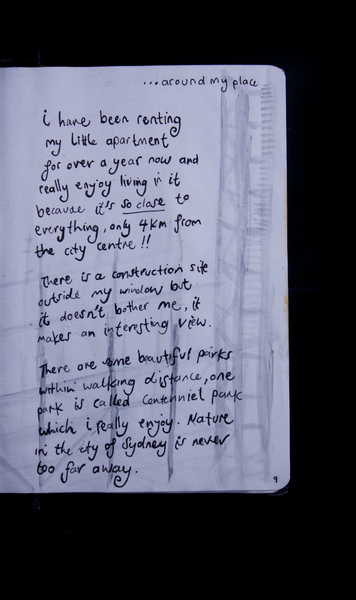 ...around my place
i have been renting
my little apartment
for over a year now and
really enjoy living in it
because it's so close to
everything, only 4km from
the city centre !!
There is a construction site
outside my window but
it doesn't bother me, it
makes an interesting view.
There are some beautiful parks
within walking distance, one
park is called Centenniel park
which i really enjoy. Nature
in the city of Sydney is never
too far away.
9